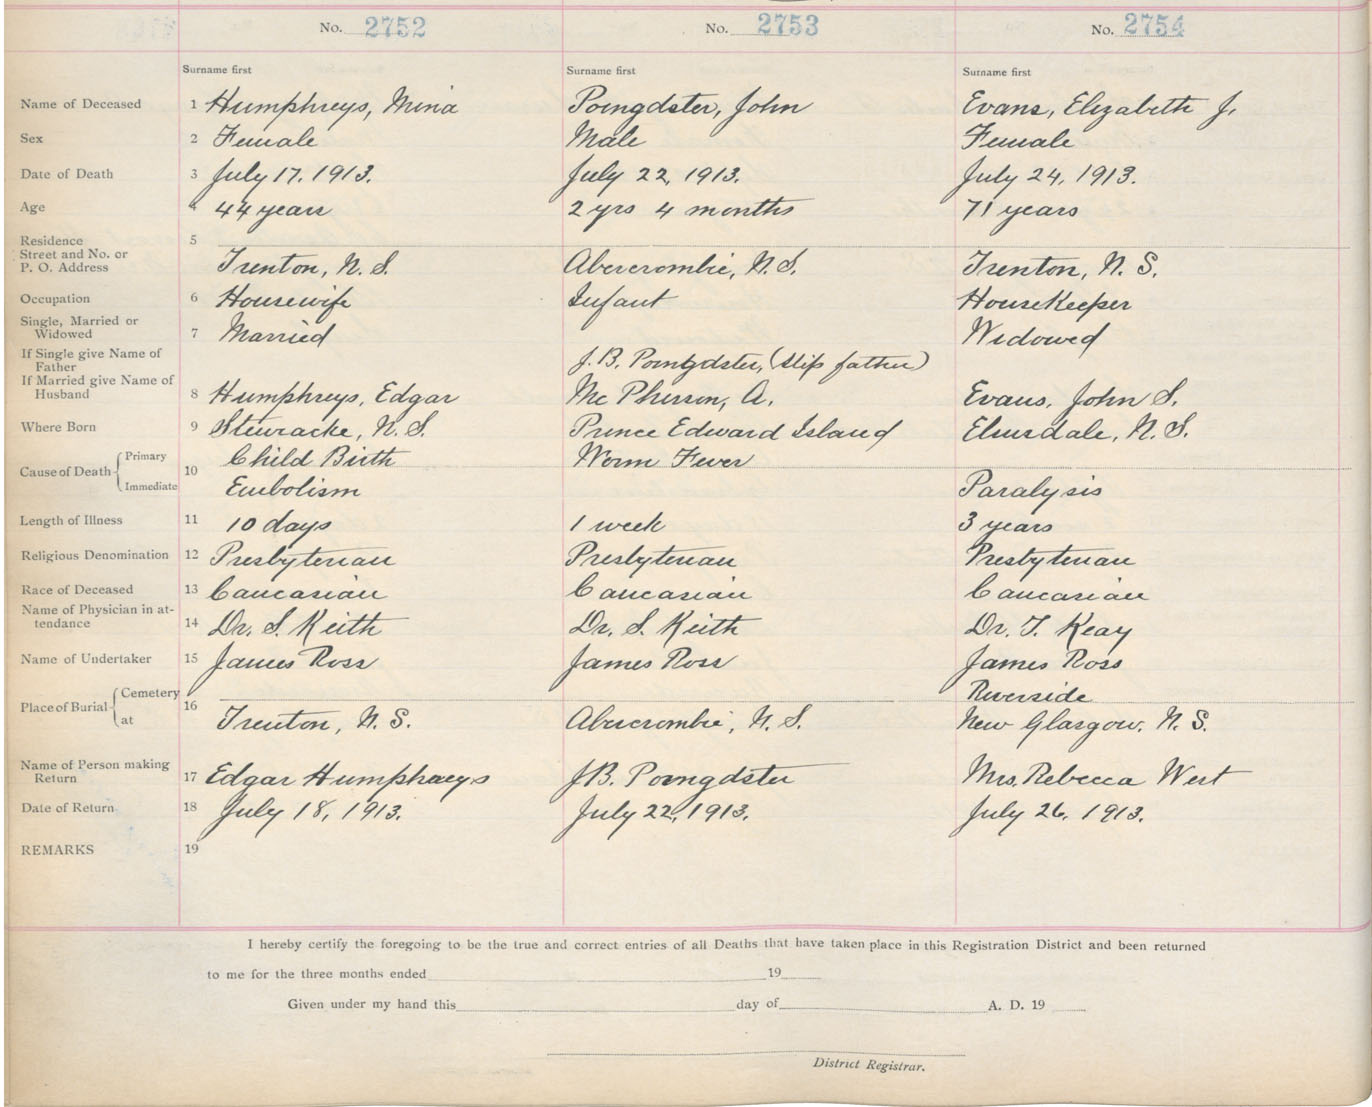 No. 2752 No. 2753 No. 2754
Surname first Surname first Surname first
Name of Deceased 1 Humphreys, Mina Poingdster, John Evans, Elizabeth J.
Sex 2 Female Male Female
Date of Death 3 July 17, 1913. July 22, 1913. July 24, 1913.
Age 4 44 years 2 yrs 4 months 71 years
Residence 5
Street and No. or
P. O. Address Trenton, N. S. Abercrombie, N. S. Trenton, N. S.
Occupation 6 Housewife Infant HouseKeeper
Single, Married or
Widowed 7 Married Widowed
If Single give Name of
Father J. B. Poingdster, (Step father)
If Married give Name of
Husband 8 Humphreys, Edgar Mc Pherson, A. Evans, John S.
Where Born 9 Stewiacke, N. S. Prince Edward Island Elmsdale, N. S.
Cause of Death Primary Child Birth Worm Fever
10
Immediate Embolism Paralysis
Length of Illness 11 10 days 1 week 3 years
Religious Denomination 12 Presbyterian Presbyterian Presbyterian
Race of Deceased 13 Caucasian Caucasian Caucasian
Name of Physician in at-
tendance 14 Dr. S. Keith Dr. S. Keith Dr. T. Keay
Name of Undertaker 15 James Ross James Ross James Ross
Place of Burial Cemetery Riverside
16
at Trenton, N. S. Abercrombie, N. S. New Glasgow, N. S.
Name of Person making
Return 17 Edgar Humphreys J.B. Poingdster Mrs. Rebecca West
Date of Return 18 July 18, 1913. July 22, 1913. July 26, 1913.
REMARKS 19
I hereby certify the foregoing to be the true and correct entries of all Deaths that have taken place in this Registration District and been returned
to me for the three months ended 19
Given under my hand this day of A. D. 19
District Registrar.